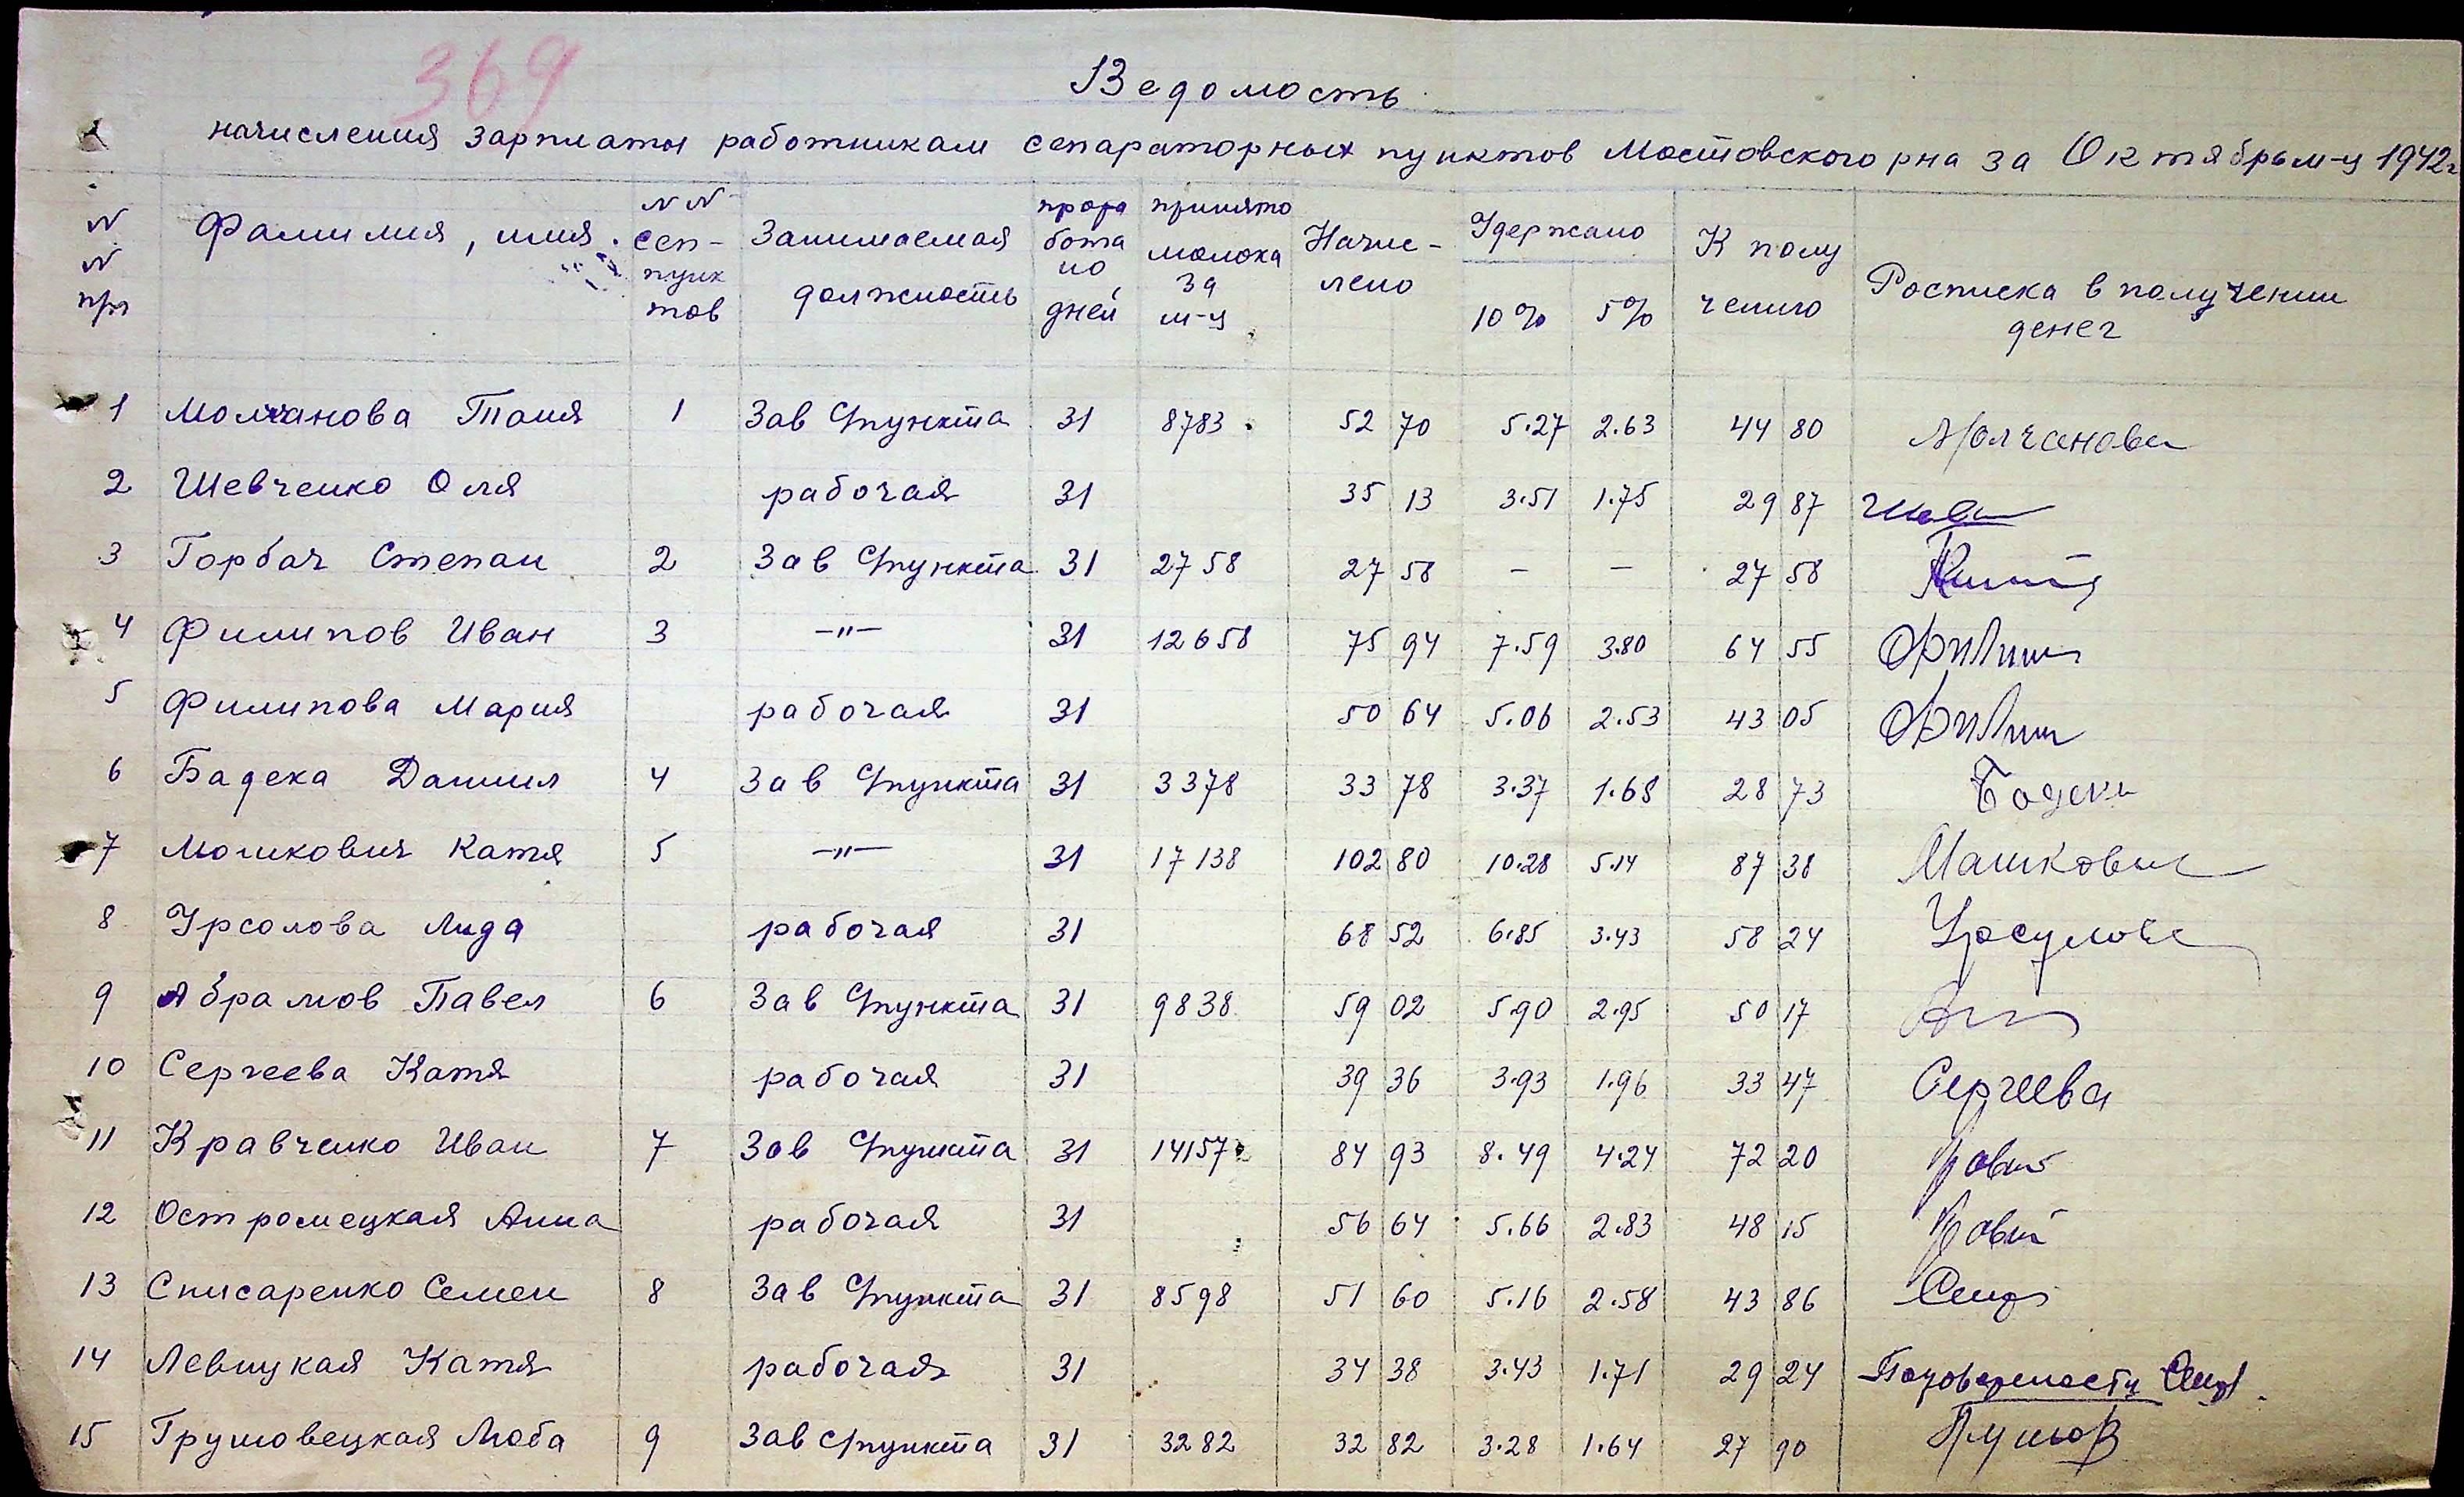 369
Ведомость
начисления зарплаты работникам сепараторных пунктов Мостовского рна за Октябрь м-ц 1942г
N N пп | Фамилия, имя. | NN сеп-пунктов | Занимаемая должность | прора бота но дней | принято молока за м-ц | Начис-лено | Удержано 10% | 5% | К полу чению | Росписка в получении денег
1 Молчанова Таня 1 Зав С/пункта 31 8783 52 70 5.27 2.63 44 80 Молчанова
2 Шевченко Оля рабочая 31 35 13 3.51 1.75 29 87
3 Горбач Степан 2 Зав С/пункта 31 2758 27 58 – – 27 58
4 Филипов Иван 3 –"– 31 12658 75 94 7.59 3.80 64 55
5 Филипова Мария рабочая 31 50 64 5.06 2.53 43 05
6 Бадека Даниил 4 Зав С/пункта 31 3378 33 78 3.37 1.68 28 73 Бадека
7 Мошкович Катя 5 –"– 31 17138 102 80 10.28 5.14 87 38 Машкович
8 Урсолова Лида рабочая 31 68 52 6.85 3.43 58 24 Урсулова
9 Абрамов Павел 6 Зав С/пункта 31 9838 59 02 5.90 2.95 50 17
10 Сергеева Катя рабочая 31 39 36 3.93 1.96 33 47 Сергеева
11 Кравченко Иван 7 Зав С/пункта 31 14157 84 93 8.49 4.24 72 20
12 Остромецкая Анна рабочая 31 56 64 5.66 2.83 48 15
13 Списаренко Семен 8 Зав С/пункта 31 8598 51 60 5.16 2.58 43 86
14 Левицкая Катя рабочая 31 34 38 3.43 1.71 29 24
15 Грушовецкая Люба 9 Зав С/пункта 31 3282 32 82 3.28 1.64 27 90